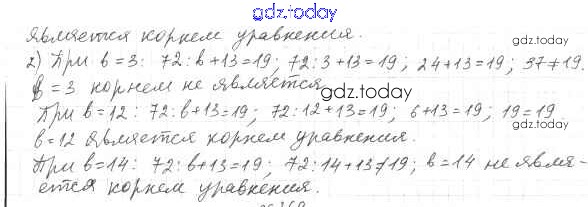 gdz.today
является корнем уравнения.
gdz.today
2) При b=3: 72:b+13=19; 72:3+13=19; 24+13=19; 37≠19.
b=3 корнем не является
gdz.today
При b=12: 72:b+13=19; 72:12+13=19; 6+13=19; 19=19
gdz.today
b=12 является корнем уравнения.
При b=14: 72:b+13=19; 72:14+13≠19; b=14 не явля-
ется корнем уравнения.
gdz.today